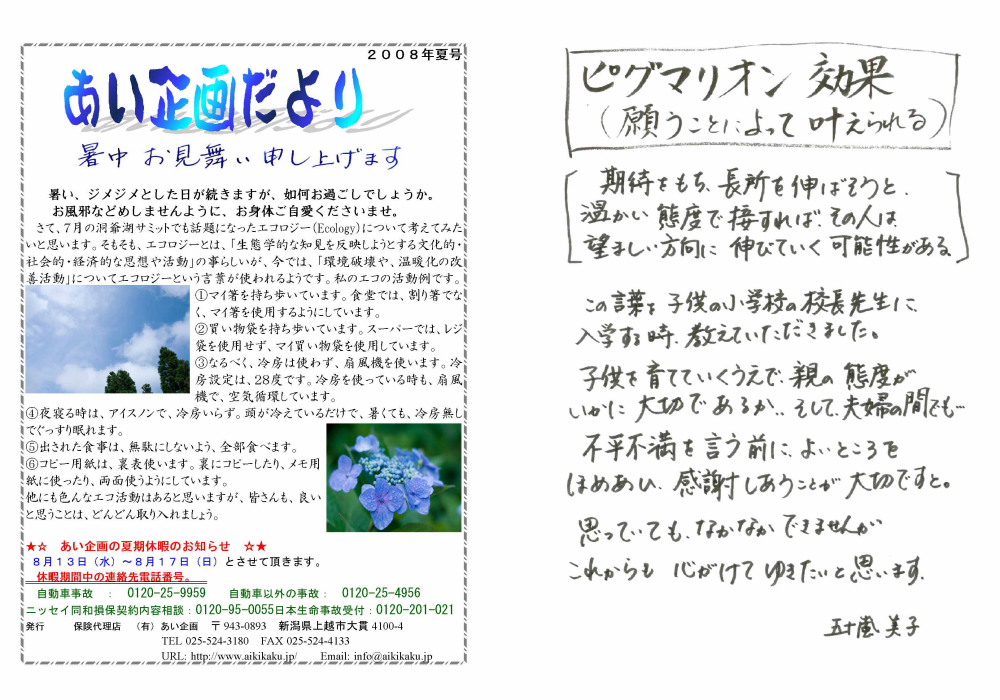 2008年夏号
あい企画だより
暑中お見舞い申し上げます
暑い、ジメジメとした日が続きますが、如何お過ごしでしょうか。
お風邪などめしませんように、お身体ご自愛くださいませ。
さて、7月の洞爺湖サミットでも話題になったエコロジー(Ecology)について考えてみた
いと思います。そもそも、エコロジーとは、「生態学的な知見を反映しようとする文化的・
社会的・経済的な思想や活動」の事らしいが、今では、「環境破壊や、温暖化の改
善活動」についてエコロジーという言葉が使われるようです。私のエコの活動例です。
①マイ箸を持ち歩いています。食堂では、割り箸でな
く、マイ箸を使用するようにしています。
②買い物袋を持ち歩いています。スーパーでは、レジ
袋を使用せず、マイ買い物袋を使用しています。
③なるべく、冷房は使わず、扇風機を使います。冷
房設定は、28度です。冷房を使っている時も、扇風
機で、空気循環しています。
④夜寝る時は、アイスノンで、冷房いらず。頭が冷えているだけで、暑くても、冷房無し
でぐっすり眠れます。
⑤出された食事は、無駄にしないよう、全部食べます。
⑥コピー用紙は、裏表使います。裏にコピーしたり、メモ用
紙に使ったり、両面使うようにしています。
他にも色んなエコ活動はあると思いますが、皆さんも、良い
と思うことは、どんどん取り入れましょう。
★☆ あい企画の夏期休暇のお知らせ ☆★
8月13日(水)~8月17日(日)とさせて頂きます。
休暇期間中の連絡先電話番号。
自動車事故 : 0120-25-9959 自動車以外の事故: 0120-25-4956
ニッセイ同和損保契約内容相談:0120-95-0055日本生命事故受付:0120-201-021
発行 保険代理店 (有)あい企画 〒943-0893 新潟県上越市大貫4100-4
TEL 025-524-3180 FAX 025-524-4133
URL: http://www.aikikaku.jp/ Email: info@aikikaku.jp
ピグマリオン効果
(願うことによって叶えられる)
期待をもち、長所を伸ばそうと、
温かい態度で接すれば、その人は
望ましい方向に伸びていく可能性がある
この言葉を子供の小学校の校長先生に、
入学する時、教えていただきました。
子供を育てていくうえで、親の態度が
いかに大切であるか‥そして、夫婦の間でも…
不平不満を言う前に、よいところを
ほめあい、感謝しあうことが大切ですと。
思っていても、なかなかできませんが
これからも心がけてゆきたいと思います。
五十嵐美子